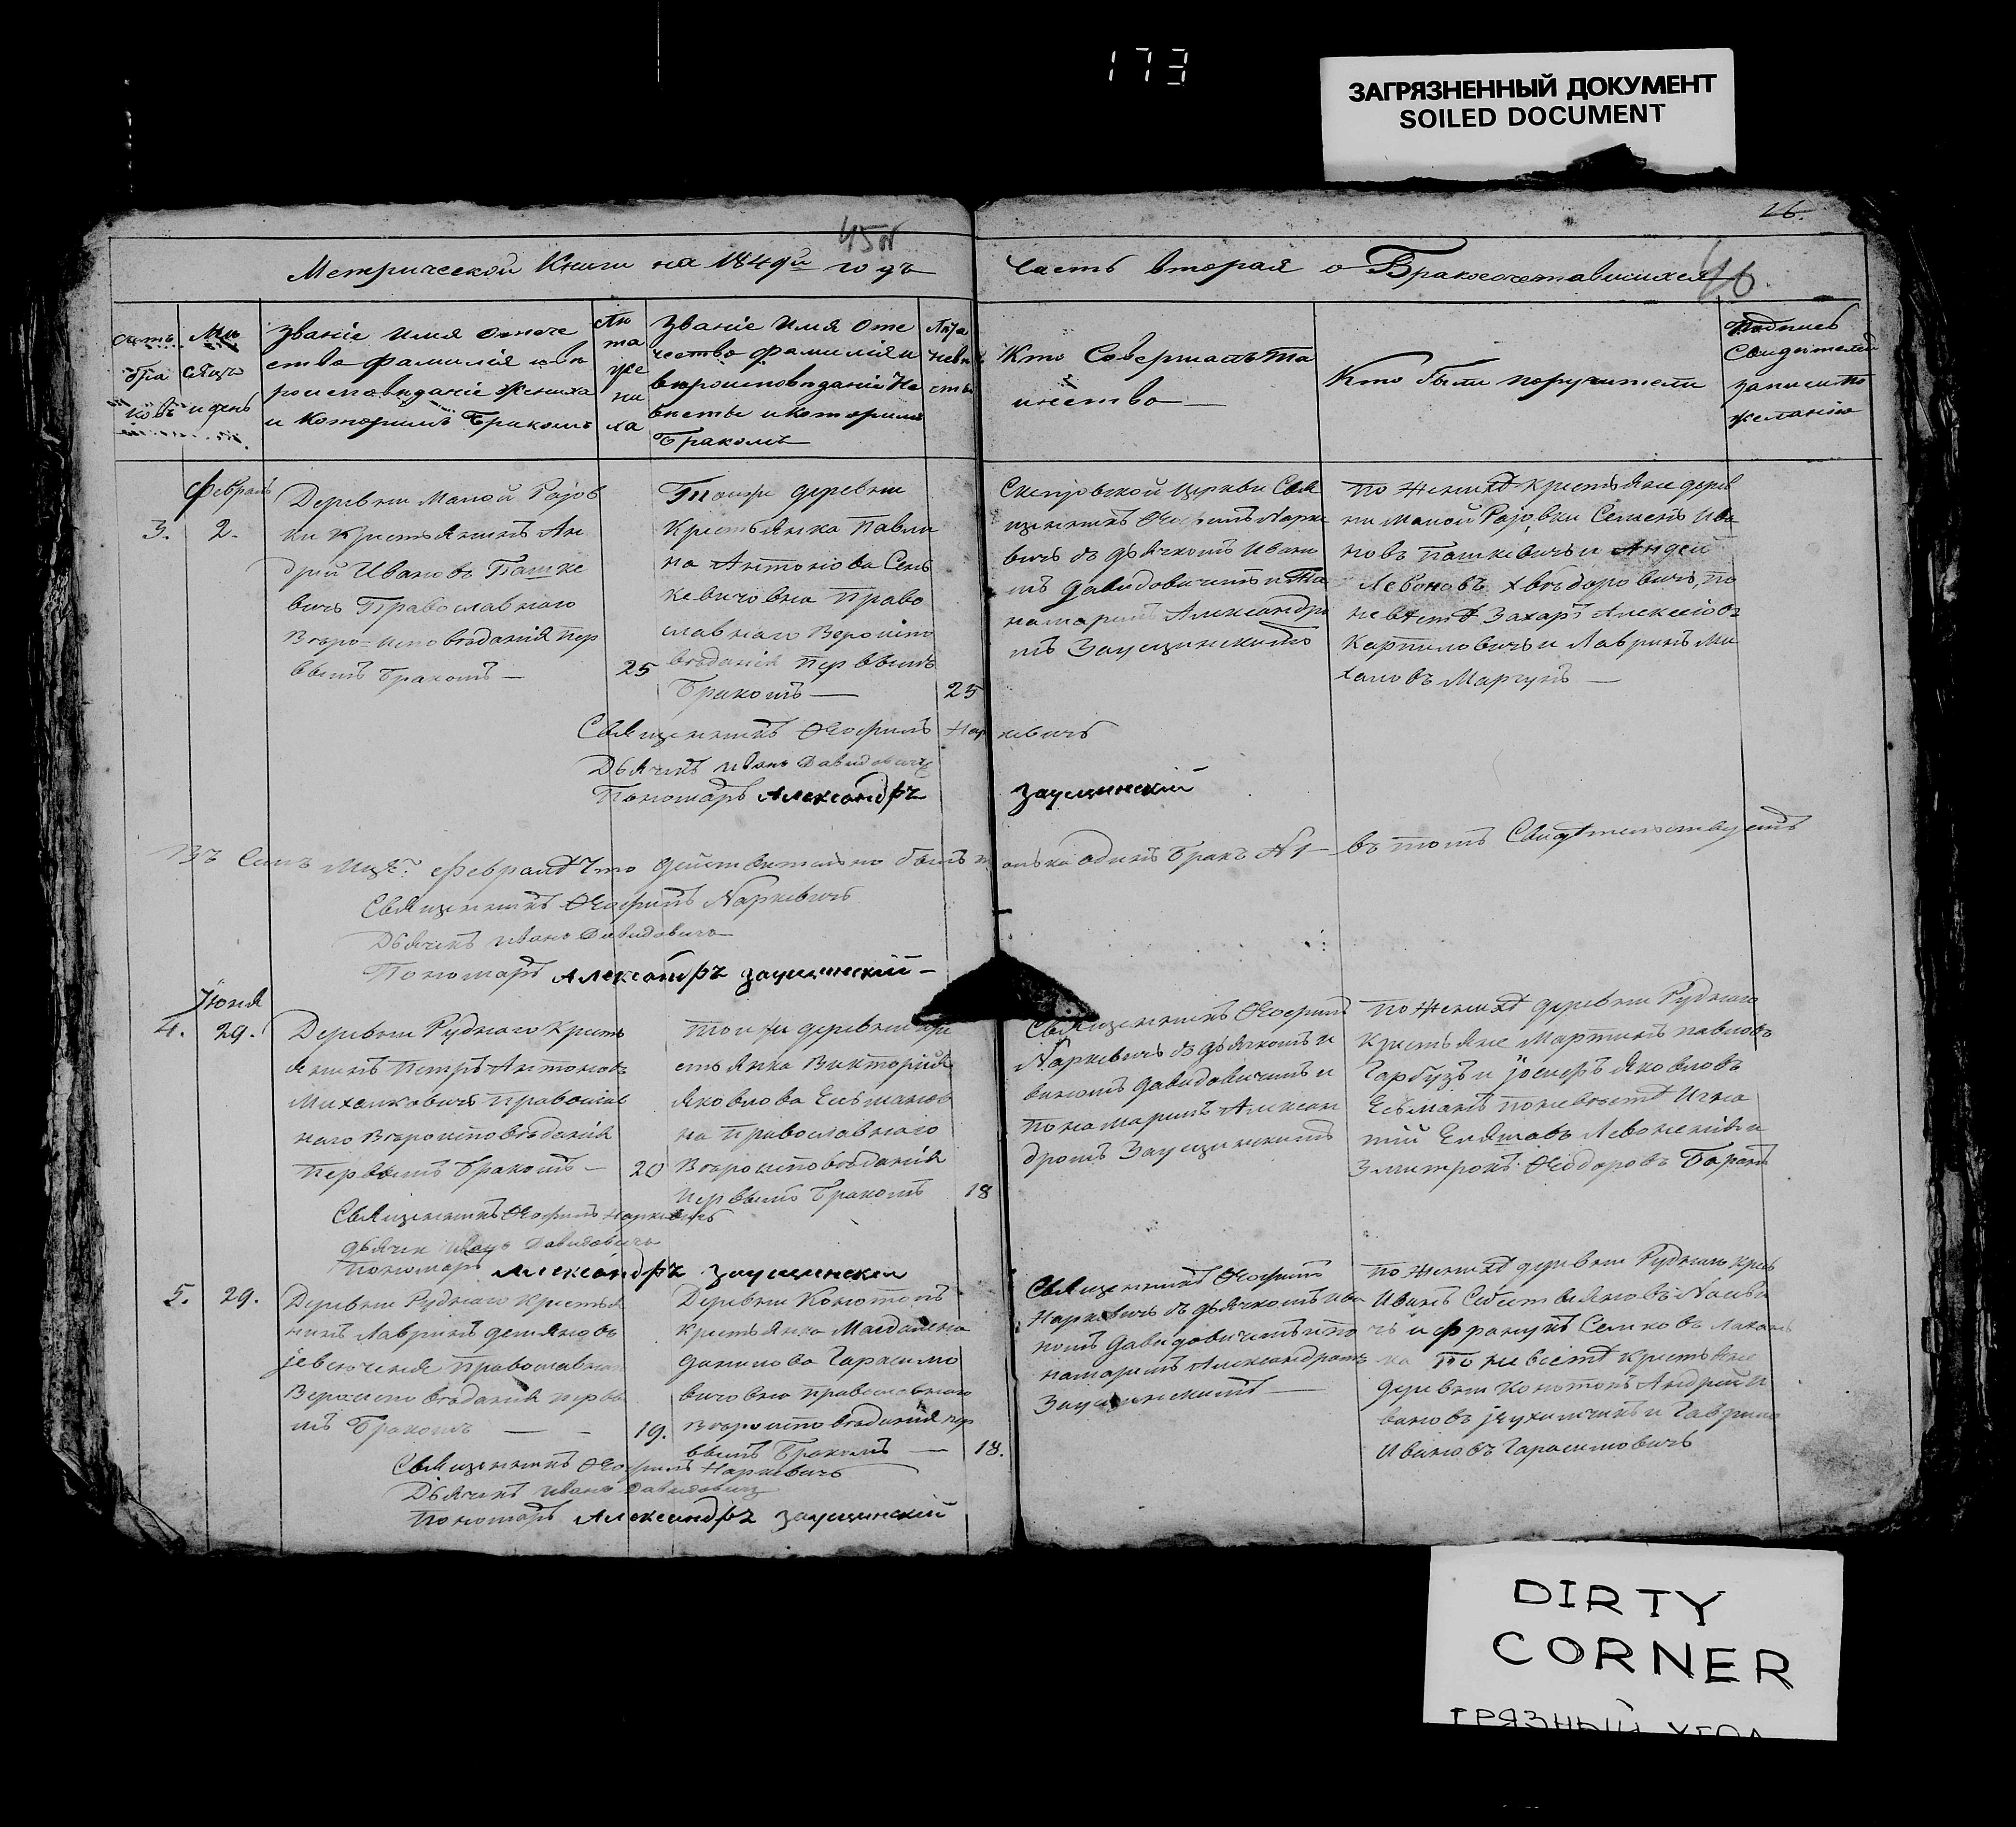 173
ЗАГРЯЗНЕННЫЙ ДОКУМЕНТ
SOILED DOCUMENT
26.
45
46.
Метрической Книги на 1849й годъ
Часть вторая о Бракосочетавшихся
Счетъ
бра
ковъ
Мѣ
сяцъ
и день
Званіе Имя Отече
ство Фамилія и вѣ
роисповѣданіе Жениха
и Которымъ Бракомъ
Лѣ
та
же
ни
ха
Званіе Имя Оте
чество Фамилія и
вѣроисповѣданіе Не
вѣсты и которымъ
Бракомъ
Лѣта
невѣ
сты
Кто Совершалъ Та
инство
Кто были поручители
Подпись
Свидѣтелей
записи по
желанію
Февраль
3.
2.
Деревни Малой Раіов
ки Крестьянинъ Ан
дрей Ивановъ Пашке
вичъ Православнаго
Вѣро=исповѣданія пер
вымъ бракомъ —
25
Тойже деревни
Крестьянка Павли
на Антонова Сень
кевичовна Право
славнаго Вероиспо
вѣданія первымъ
Бракомъ —
25
Церкви Свя
щенникъ Ѳеофилъ Нарке
вичъ съ дьячкомъ Ивано
мъ Давидовичемъ и По
номаремъ Александро
мъ Заущинскимъ
по Женихѣ крестьяне дерев
ни малой Раіовки Семенъ Ива
новъ Пашкевичъ и Андрей
Левоновъ Хвѣдоровичъ, по
невѣстѣ Захаръ Алексѣевъ
Карпиловичъ и Лавринъ Ми
халовъ Маргунъ —
Священникъ Ѳеофилъ Наркевичъ
Дьячекъ Иванъ Давидовичъ
Пономарь Александръ Заущинскій
Въ Семъ Мцѣ Февралѣ что действительно былъ только одинъ бракъ № 1 — въ томъ Свидѣтельствуемъ
Священникъ Ѳеофилъ Наркевичъ
Дьячекъ Иванъ Давидовичъ
Пономарь Александръ Заущинскій —
Іюня
4.
29.
Деревни Руднаго Кресть
янинъ Петръ Антоновъ
Михалковичъ православ
наго Вѣроисповѣданія
первымъ бракомъ —
20
Тойже деревни кре
стьянка Викторія
Яковлова Ельманов
на православнаго
Вѣроисповѣданія
первымъ Бракомъ
18
Священникъ Ѳеофилъ
Наркевичъ съ дьячкомъ И
ваномъ Давидовичемъ и
пономаремъ Алексан
дромъ Заущинскимъ
по Женихѣ деревни Руднаго
Крестьяне Мартинъ Павловъ
Гарбузъ и Іосифъ Яковловъ
Ельманъ по невѣстѣ Игна
тій Левоненко и
Змитронъ Ѳеодоровъ Баранъ
Священникъ Ѳеофилъ Наркевичъ
дьячекъ Иванъ Давидовичъ
пономарь Александръ Заущинскій
5.
29.
Деревни Руднаго Крестья
нинъ Лавринъ Демяновъ
православнаго
Вероисповѣданія первы
мъ Бракомъ — -
19.
Деревни Конотопъ
Крестьянка Магдалена
Данилова Гарасимо
вичовна православнаго
вѣроисповѣданія пер
вымъ Бракомъ —
18.
Священникъ Ѳеофилъ
Наркевичъ съ дьячкомъ Ива
номъ Давидовичемъ и по
номаремъ Александромъ
Заущинскимъ —
по Женихѣ деревни Руднаго крес
Иванъ
и Францъ Семковъ
по невестѣ крестьяне
деревни Конотопъ Андрей И
вановъ и Гаврило
Ивановъ Гарасимовичъ
Священникъ Ѳеофилъ Наркевичъ
Дьячекъ Иванъ Давидовичъ
Пономарь Александръ Заущинскій
DIRTY
CORNER
ГРЯЗНЫЙ УГОЛ